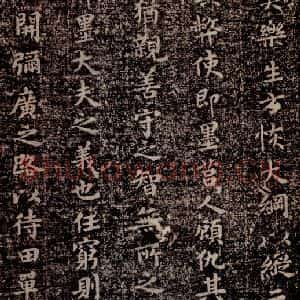 樂生方恢大綱以縱二
弊使即墨莒人顧仇其
猶親善守之智無所之
墨大夫之義也任窮則
開彌廣之路以待田單